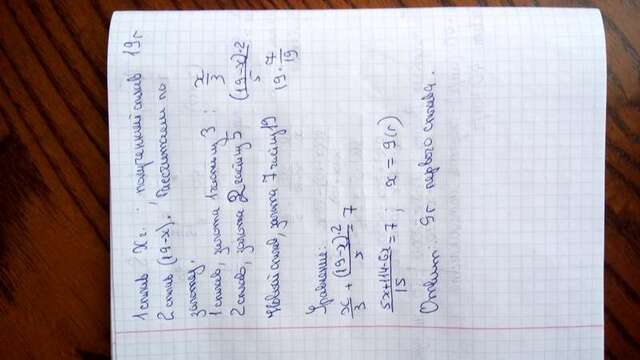 1 сплав x г. ; полученный сплав 19 г
2 сплав (19-x). Рассчитаем по
золоту.
1 сплав, золота 1 часть из 3 ; x/3
2 сплав, золота 2 части из 5 (19-x)·2/5
Новый сплав, золота 7 частей из 19 19·7/19
Уравнение:
x/3 + (19-x)·2/5 = 7
5x+114-6x/15 = 7 ; x = 9 (г)
Ответ: 9 г. первого сплава.